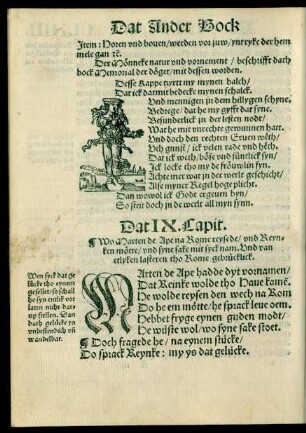 Dat Ander Bock
Item: Noten vnd houen/werden vor juw/ynryke der hem
mele gan ꝛc.
Der Mönneke natur vnd vornement / beschrifft dath
bock Memorial der döget/mit dessen worden.
Desse Kappe tzyret my mynen balch/
Dat ick darmit bedecke mynen schalck.
Vnd mennigen jn dem hilligen schyne/
Bedrege/dat he my gyfft dat syne.
Besünderlick jn der lesten nodt/
Wat he mit vnrechte gewunnen hatt.
Vnd doch den rechten Eruen wêth/
Vth gunst/ ick velen rade vnd hêth.
Dat ick woch/böse vnd süntlick syn/
Jck locke tho my de fröuwlin fyn.
Jchte mer wat jn der werlt geschicht/
Alse myner Regel hoge plicht.
Dan wowol ick Gode ergeuen byn/
So steit doch jn de werlt all myn synn.
Dat IX. Capit.
¶ Wo Marten de Ape na Rome reysede/ vnd Reyn-
ken mötte/ vnd syne sake mit sick nam. Vnd van
etlyken lasteren tho Rome gebrücklick.
Wen sick dat ge
lücke tho eynem
gesellet/so schall
he syn entlik vor
laten nicht dar
up stellen. Dan
dath gelücke ys
vnbestendich vñ
wandelbar.
MArten de Ape hadde dyt vornamen/
Dat Reinke wolde tho Haue kamẽ.
He wolde reysen den wech na Rom
Do he em mötte/ he sprack leue oem.
Hebbet fryge eynen guden modt/
He wüste wol/ wo syne sake stoet.
¶ Doch fragede he / na eynem stücke/
Do sprack Reynke: my ys dat gelücke.